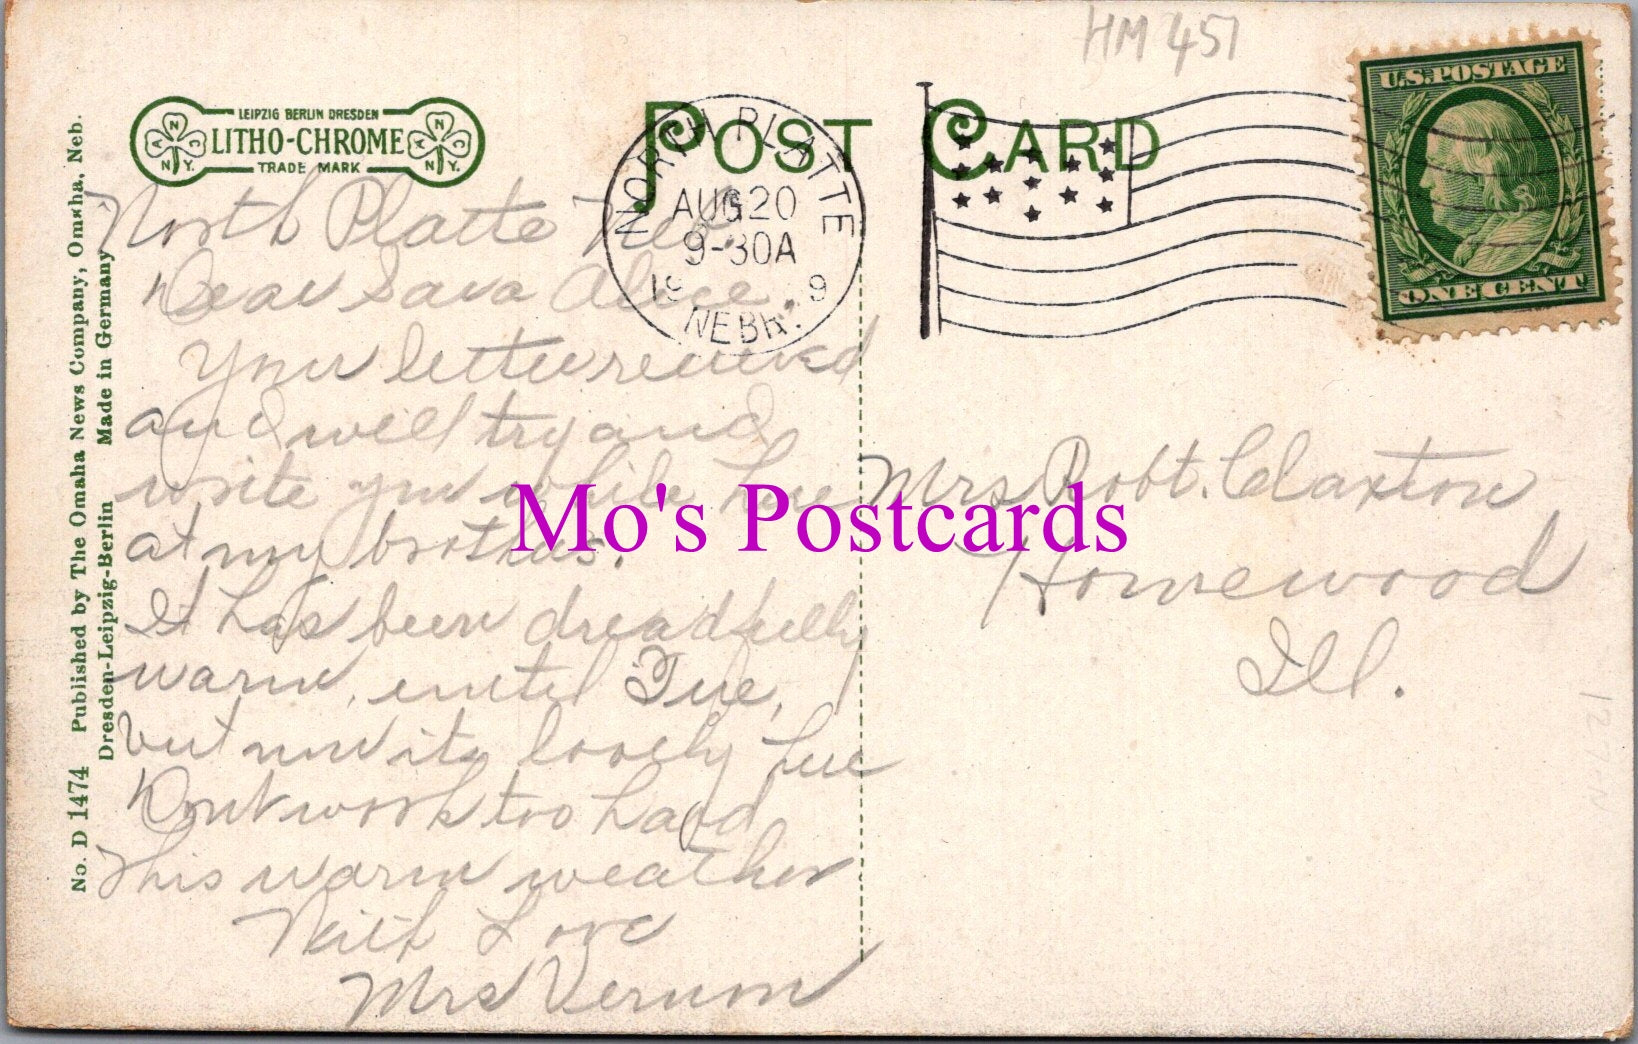 HM 451
LEIPZIG BERLIN DRESDEN
LITHO-CHROME
TRADE MARK
POST CARD
NORTH PLATTE
AUG 20
9-30A
19 9
NEBR.
U.S. POSTAGE
ONE CENT
No. D 1474 Published by The Omaha News Company, Omaha, Neb.
Dresden-Leipzig-Berlin Made in Germany
North Platte Neb.
Dear Sara Alice.
Your letter received
and will try and
write you while here
at my brothers.
It has been dreadfully
warm, until Tue,
but now its lovely here
Dont work too hard
This warm weather
With Love
Mrs Vernon
Mrs Robt. Claxton
Homewood
Ill.
Mo's Postcards